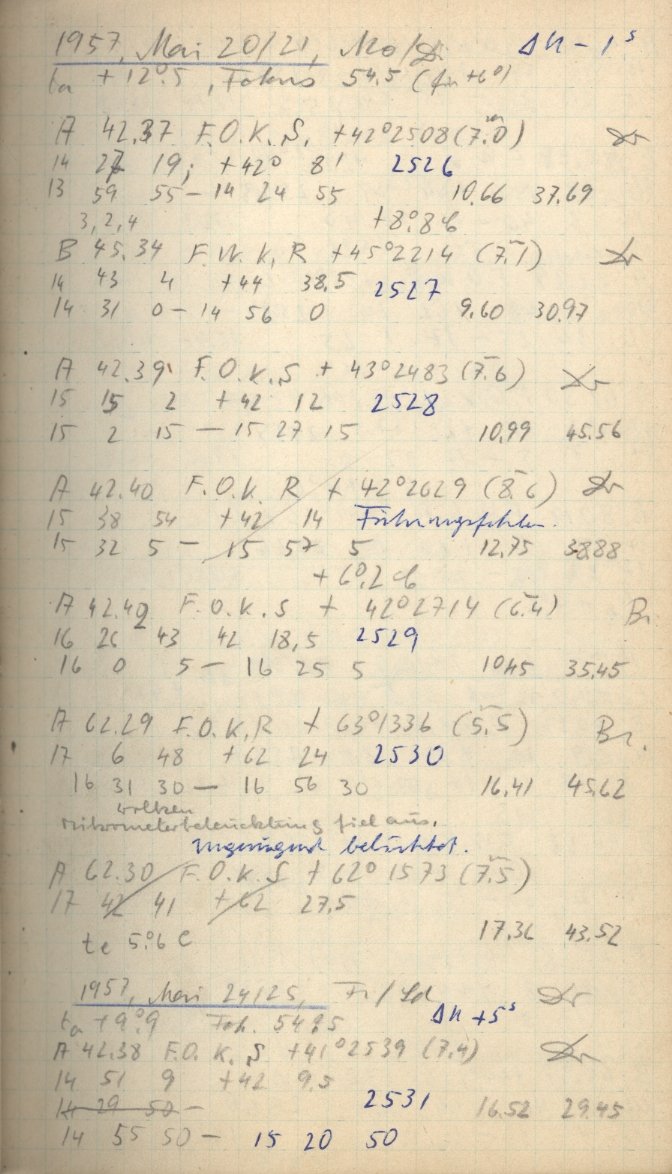 1957, Mai 20/21, Mo/Di Δu - 1ˢ
ta + 12°.5, Fokus 54.5 (fu +6°)
A 42.37 F.O.K.S. +42°2508 (7.0)
14 27 19; +42° 8' 2526
13 59 55 - 14 24 55 10.66 37.69
3,2,4 +8°.8
B 45.34 F.W.K.R +45°2214 (7.1)
14 43 4 +44 38.5 2527
14 31 0 - 14 56 0 9.60 30.97
A 42.39 F.O.K.S + 43°2483 (7.6)
15 15 2 +42 12 2528
15 2 15 - 15 27 15 10.99 45.56
A 42.40 F.O.K. R + 42°2629 (8.6)
15 38 54 +42 14 Führungsfehler.
15 32 5 - 15 57 5 12,75 38.88
+ 6°.2
A 42.42 F.O.K.S + 42°2714 (6.4) Br.
16 26 43 42 18,5 2529
16 0 5 - 16 25 5 10.45 35.45
A 62.29 F.O.K.R + 63°1336 (5.5) Br.
17 6 48 +62 24 2530
16 31 30 - 16 56 30 16.41 45.62
Wolken
Mikrometerbeleuchtung fiel aus.
ungenügend belichtet.
A 62.30 F.O.K.S + 62° 1573 (7.5)
17 42 41 +62 27.5
te 5°.6 C 17.36 43.52
1957, Mai 24/25, Fr/Sa
ta +9°.9 Fok. 54.5 Δu +5ˢ
A 42.38 F.O.K.S +41°2539 (7.4)
14 51 9 +42 9.5
14 29 50 - 2531 16.52 29.45
14 55 50 - 15 20 50